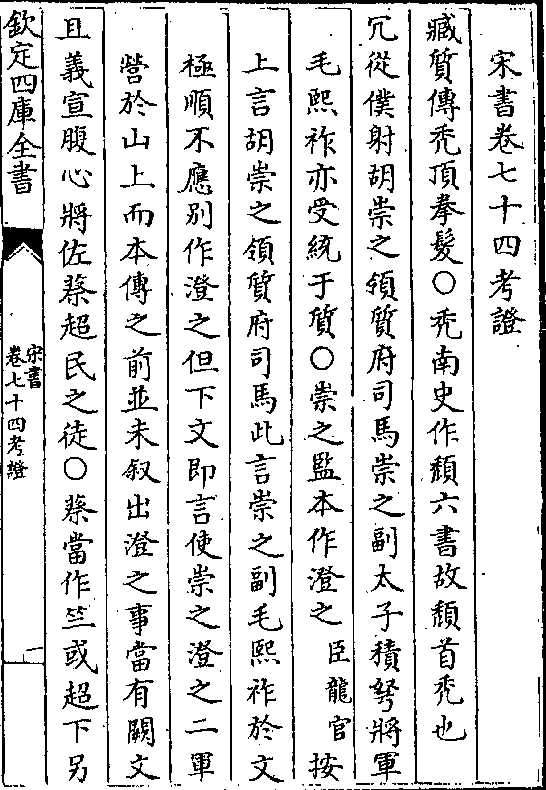 宋書卷七十四考證
臧質傳禿頂拳髮○禿南史作頽六書故頽首禿也
冗從僕射胡崇之領質府司馬崇之副太子積弩將軍
毛熙祚亦受統于質○崇之監本作澄之臣龍官按
上言胡崇之領質府司馬此言崇之副毛熙祚於文
極順不應別作澄之但下文即言使崇之澄之二軍
營於山上而本傳之前並未叙出澄之事當有闕文
且義宣腹心將佐蔡超民之徒○蔡當作竺或超下另
欽定四庫全書
宋書
卷七十四考證
一